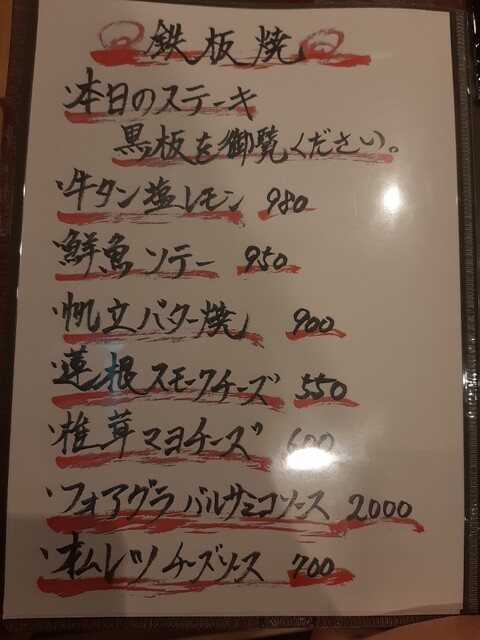 鉄板焼
・本日のステーキ
黒板を御覧ください。
・牛タン塩レモン 980
・鮮魚ソテー 950
・帆立バター焼 900
・蓮根スモークチーズ 550
・椎茸マヨチーズ 600
・フォアグラバルサミコソース 2000
・オムレツチーズソース 700